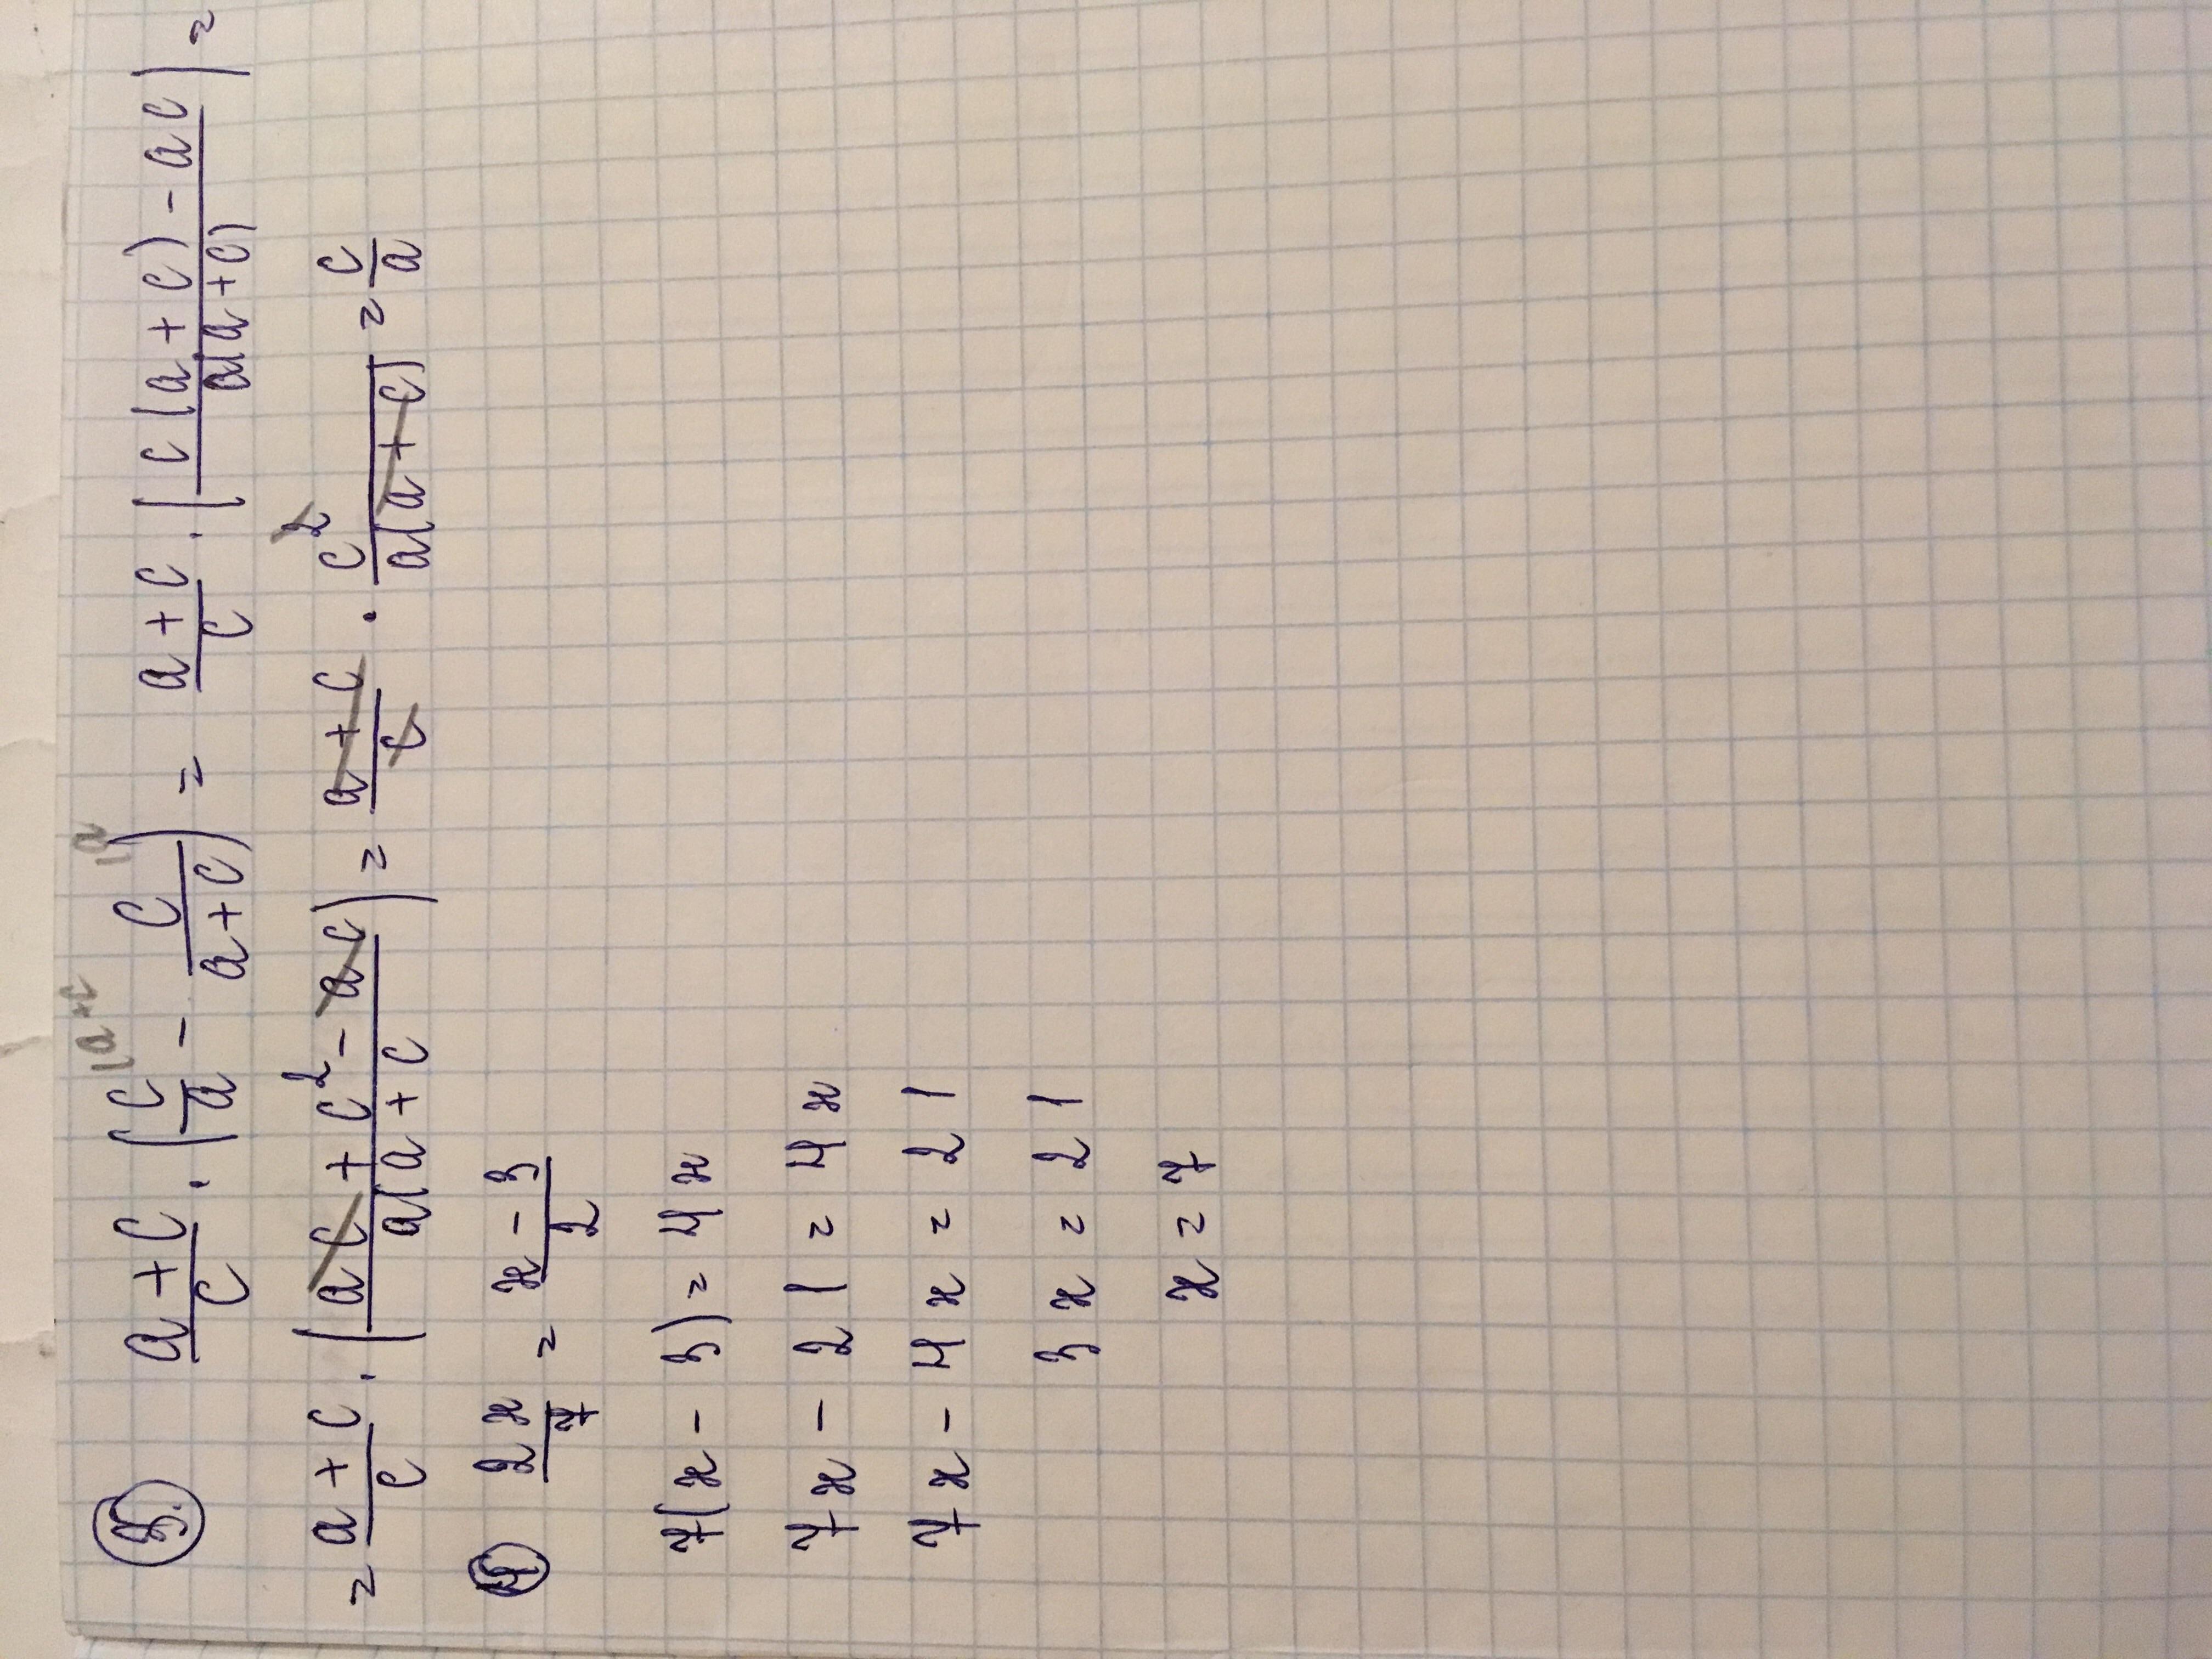 3. a+c/c · (c/a |a+c - c/a+c |a) = a+c/c · (c(a+c)-ac/a(a+c)) =
= a+c/c · (ac+c²-ac/a(a+c) = a+c/c · c²/a(a+c) = c/a
4 2x/7 = x-3/2
7(x-3)=4x
7x-21=4x
7x-4x=21
3x=21
x=7